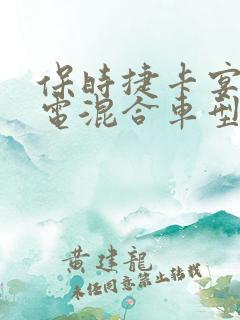 保時捷卡宴
電混合車型
黃建龍
未經同意禁止轉載